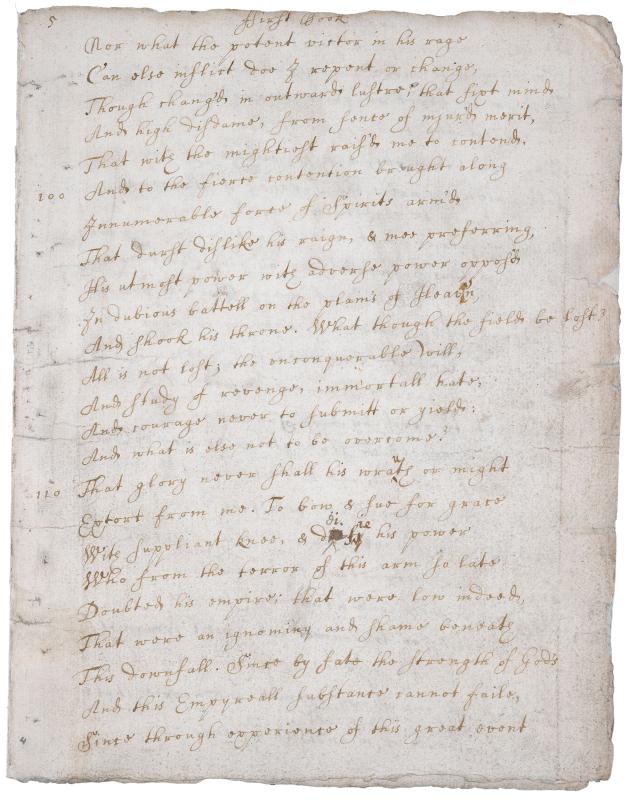 5 First Book
Nor what the potent victor in his rage
Can else inflict doe I repent or change,
Though chang'd in outward lustre, that fixt mind
And high disdaine, from sence of injur'd merit,
That with the mightiest rais'd me to contend,
100 And to the fierce contention brought along
Innumerable force of Spirits arm'd
That durst dislike his raign, & mee preferring,
His utmost power with adverse power oppos'd
In dubious battell on the plains of Heav'n,
And shook his throne. What though the field be lost?
All is not lost; the unconquerable will,
And study of revenge, immortall hate,
And courage never to submitt or yield:
And what is else not to be overcome?
110 That glory never shall his wrath or might
Extort from me. To bow & sue for grace
With suppliant knee, & his power
Who from the terror of this arm so late
Doubted his empire; that were low indeed,
That were an ignominy and shame beneath
This downfall. Since by fate the strength of Gods
And this Empyreall substance cannot faile,
Since through experience of this great event